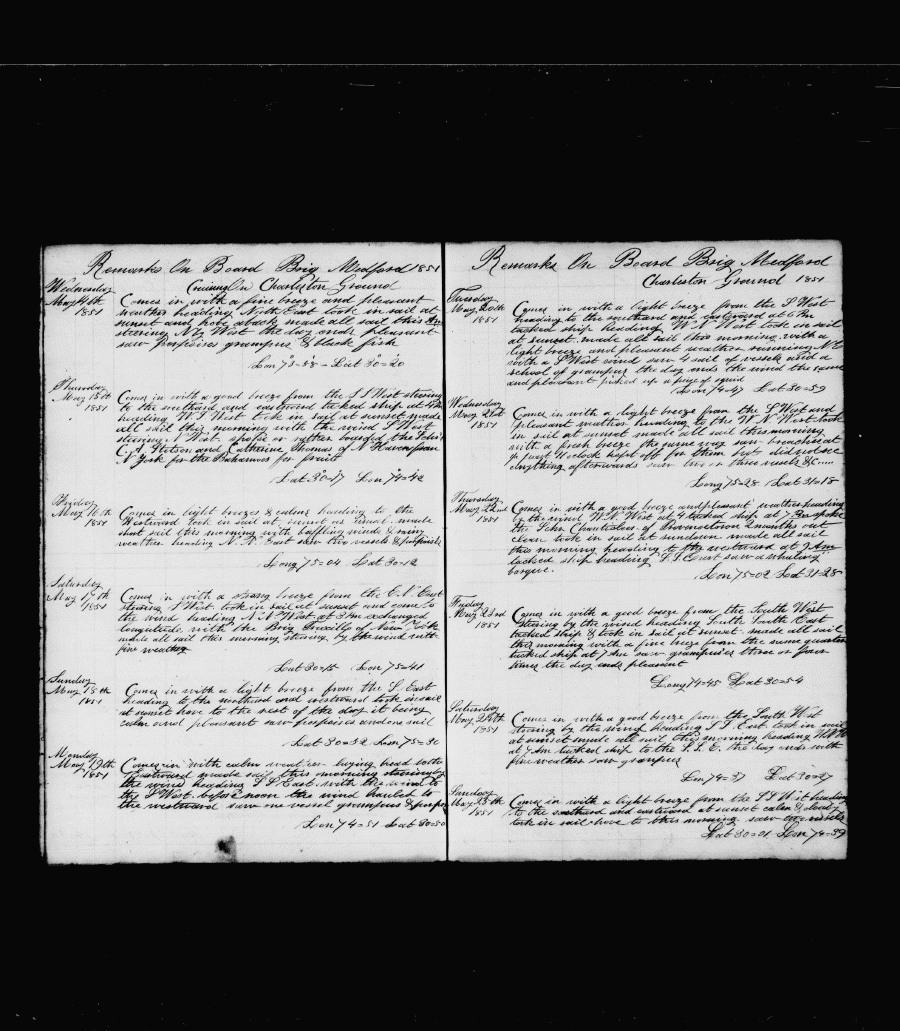 Remarks On Board Brig Medford 1851
Cruising On Charleston Ground
Wednesday
May 14th
1851
Comes in with a fine breeze and pleasant
weather heading North East took in sail at
sunset and hove aback made all sail this Am
steering N by West the day ends pleasant
saw porpoises grampus & black fish
Lon 73=58 - Lat 30=20
Thursday
May 15th
1851
Comes in with a good breeze from the S S West steering
to the southard and eastward tacked ship at
heading W S West took in sail at sunset made
all sail this morning with the wind S West
steering N West spoke or rather boarded the
C A Stetson and Catherine Thomas of N Haven from
N York for the Bahamas for fruit
Lat 30=17 Lon 74=42
Friday
May 16th
1851
Comes in light breezes & calms heading to the
Westward took in sail at sunset as usual made
short sail this morning with baffling winds & rainy
weather heading N N East saw two vessels & porpoises
Long 75=04 Lat 30=12
Saturday
May 17th
1851
Comes in with a strong breeze from the E N East
steering S West took in sail at sunset and came to
the wind heading N N West at 3 Am exchanged
longitude with the Brig of New York
made all sail this morning steering by the wind with
fine weather
Lat 30=15 Lon 75=41
Sunday
May 18th
1851
Comes in with a light breeze from the S East
heading to the northard and eastward took in sail
at sunset hove to the rest of the day it being
calm and pleasant saw porpoises and one sail
Lat 30=32 Lon 75=30
Monday
May 19th
1851
Comes in with calm weather laying head to the
Eastward made sail this morning steering by
the wind heading S S East with the wind to
the S West before noon the wind hauled to
the westward saw one vessel grampus & porpoises
Lon 74=51 Lat 30=50
Remarks On Board Brig Medford
Charleston Ground 1851
Tuesday
May 20th
1851
Comes in with a light breeze from the S West
heading to the southard and eastward at 6 Pm
tacked ship heading W N West took in sail
at sunset made all sail this morning with a
light breeze and pleasant weather running N E
with a S West wind saw 4 sail of vessels and a
school of grampus the day ends the wind the same
and pleasant picked up a piece of squid
Lon 74=47 Lat 30=59
Wednesday
May 21st
1851
Comes in with a light breeze from the S West and
pleasant weather heading to the W N West took
in sail at sunset made all sail this morning
with a fresh breeze the same way saw breaches at
oclock kept off for them but did not see
anything afterwards saw two or three vessels &c
Long 75=28 Lat 31=18
Thursday
May 22nd
1851
Comes in with a good breeze and pleasant weather heading
by the wind W N West at 4 tacked ship at 7 Pm spoke
the Schr of Provincetown 2 months out
clean took in sail at sundown made all sail
this morning heading to the westward at 9 Am
tacked ship heading S S East saw a whaling
barque
Lon 75=02 Lat 31=28
Friday
May 23rd
1851
Comes in with a good breeze from the South West
steering by the wind heading South South East
tacked ship & took in sail at sunset made all sail
this morning with a fine breeze from the same quarter
tacked ship at 7 Am saw grampuses three or four
times the day ends pleasant
Long 74=45 Lat 30=54
Saturday
May 24th
1851
Comes in with a good breeze from the South West
steering by the wind heading S S East took in sail
at sunset made all sail this morning heading W N W
at 7 Am tacked ship to the S S E the day ends with
fine weather saw grampus
Lon 74=37 Lat 30=37
Sunday
May 25th
1851
Comes in with a light breeze from the S S West heading
to the southard and eastward at sunset calm &
took in sail hove to this morning saw two vessels
Lat 30=01 Lon 74=39